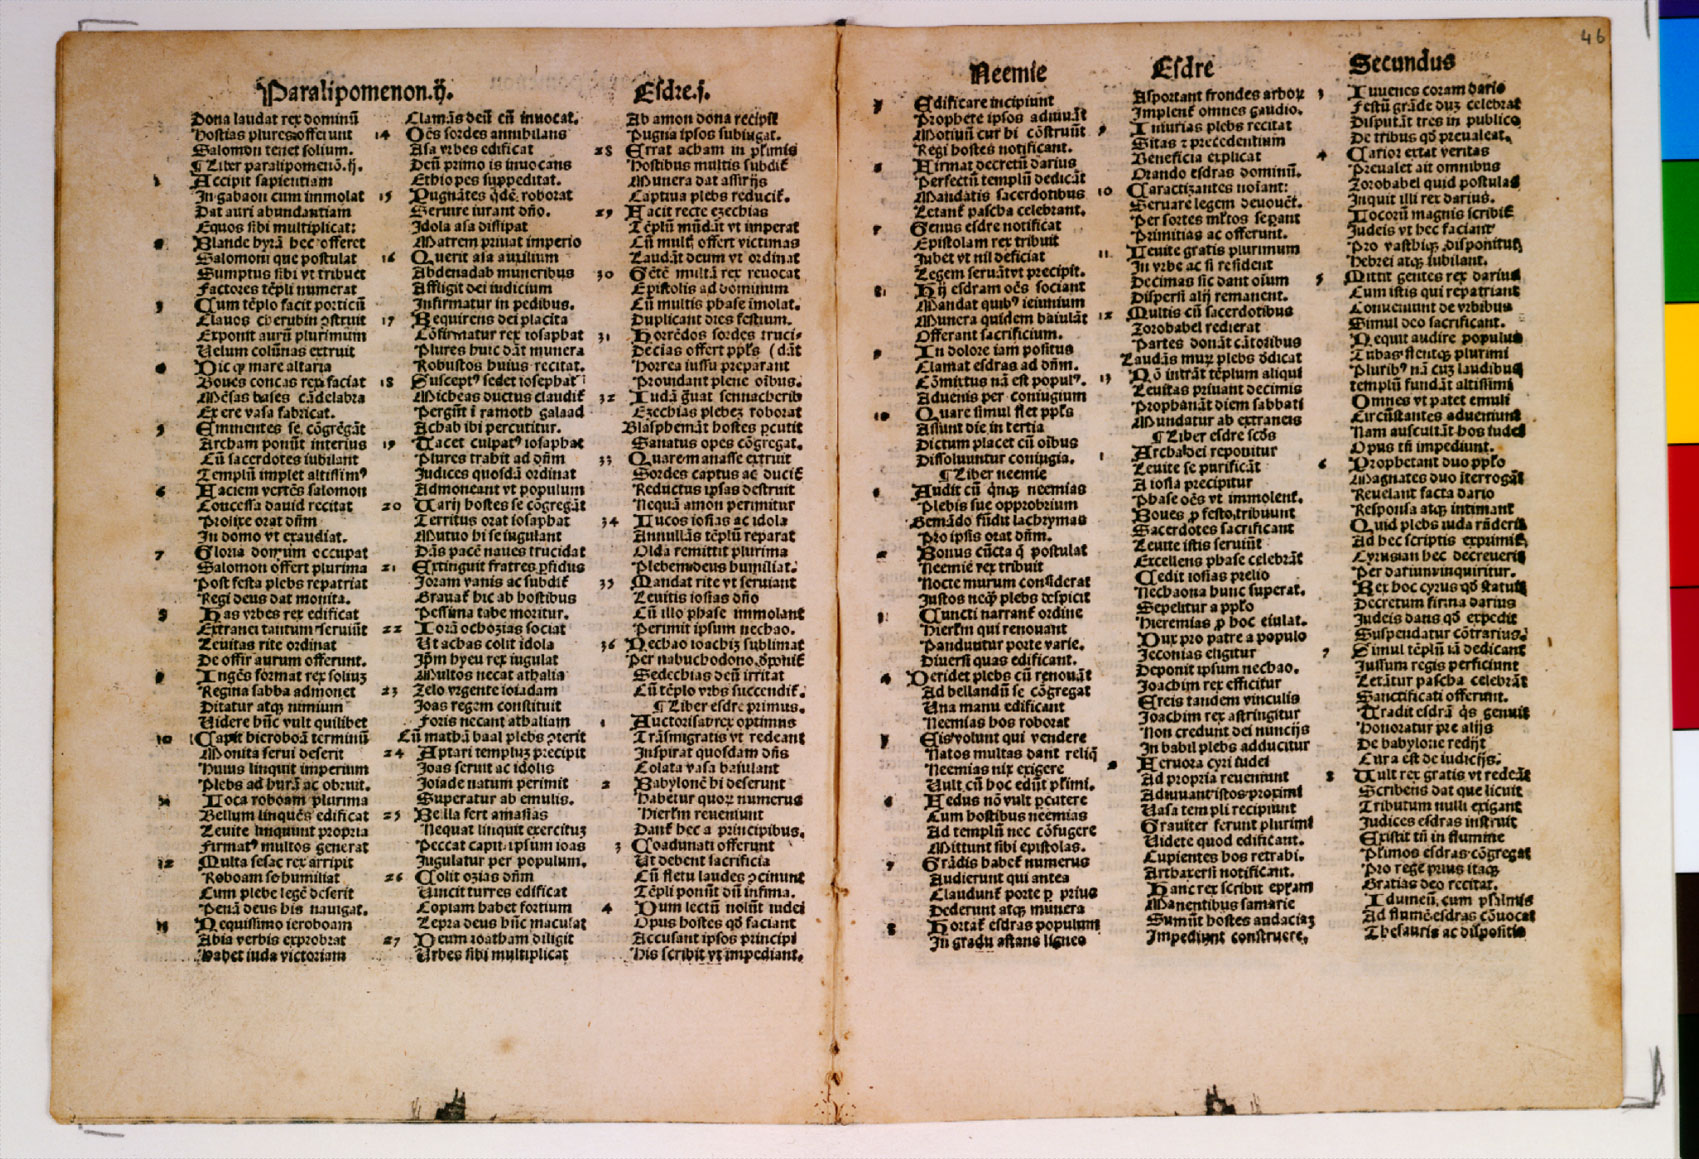 Paralipomenon.ij.
Dona laudat rex dominū
Hostias plures offerunt
Salomon tenet solium.
¶ Liber paralipomenō.ij.
1 Accipit sapientiam
In gabaon cum immolat
Dat auri abundantiam
Equos sibi multiplicat:
Blande hyrā hec offeret
Salomoni que postulat
Sumptus sibi vt tribuet
Factores tēpli numerat
3 Cum tēplo facit porticū
Clauos cherubin ꝯstruit
Exponit aurū plurimum
Uelum colūnas extruit
Hic ꝙ mare altaria
Boues concas rex faciat
Mēsas bases cādelabra
Ex ere vasa fabricat.
5 Eminentes se cōgregāt
Archam ponūt interius
Cū sacerdotes iubilant
Templū implet altissimꝰ
6 Faciem vertēs salomon
Concessa dauid recitat
Prolixe orat dn̄m
In domo vt exaudiat.
7 Gloria domum occupat
Salomon offert plurima
Post festa plebs repatriat
Regi deus dat monita.
8 Has vrbes rex edificat
Extranei tantum seruiūt
Leuitas rite ordinat
De offir aurum offerunt.
9 Ingēs format rex soliuʒ
Regina sabba admonet
Ditatur atqʒ nimium
Uidere hūc vult quilibet
10 Capit hieroboā terminū
Monita serui deserit
Huius linquit imperium
Plebs ad hurā ac obruit.
11 Loca roboam plurima
Bellum linquēs edificat
Leuite linquunt propria
Firmatꝰ multos generat
12 Multa sesac rex arripit
Roboam se humiliat
Cum plebe legē deserit
Penā deus his nauigat.
13 Nequissimo ieroboam
Abia verbis exprobrat
Habet iuda victoriam
Clamās deū cū inuocat.
14 Oēs sordes annihilans
Asa vrbes edificat
Deū primo is inuocans
Ethiopes suppeditat.
15 Pugnātes qͥdē roborat
Seruire iurant dn̄o.
Idola asa dissipat
Matrem priuat imperio
16 Querit asa auxilium
Abdenadab muneribus
Affligit dei iudicium
Infirmatur in pedibus.
17 Requirens dei placita
Cōfirmatur rex iosaphat
Plures huic dāt munera
Robustos huius recitat.
18 Susceptꝰ sedet iosephat
Micheas ductus claudiť
Pergūt ī ramoth galaad
Achab ibi percutitur.
19 Tacet culpatꝰ iosaphat
Plures trahit ad dn̄m
Iudices quosdā ordinat
Admoneant vt populum
20 Uarij hostes se cōgregāt
Territus orat iosaphat
Mutuo hi se iugulant
Dās pacē naues trucidat
21 Extinguit fratres ꝑfidus
Ioram vanis ac subdiť
Grauať hic ab hostibus
Pessima tabe moritur.
22 Iorā ochozias sociat
Ut achas colit idola
Ip̄m hyeu rex iugulat
Multos necat athalia
23 Zelo vrgente ioiadam
Ioas regem constituit
Foris necant athaliam
Cū mathā baal plebs ꝯterit
24 Aptari templuʒ precipit
Ioas seruit ac idolis
Ioiade natum perimit
Superatur ab emulis.
25 Bella fert amasias
Nequat linquit exercituʒ
Peccat capit ipsum ioas
Iugulatur per populum.
26 Colit ozias dn̄m
Uincit turres edificat
Copiam habet fortium
Lepra deus hūc maculat
27 Deum ioatham diligit
Urbes sibi multiplicat
Esdre.j.
Ab amon dona recipiť
Pugna ipsos subiugat.
28 Errat acham in pͥmis
Hostibus multis subdiť
Munera dat assirijs
Captiua plebs reduciť.
29 Facit recte ezechias
Tēplū mūdāt vt imperat
Cū multi offert victimas
Laudāt deum vt ordinat
30 Gētē multā rex reuocat
Epistolis ad dominum
Cū multis phase imolat.
Duplicant dies festium.
31 Horrēdos sordes truci-
Decias offert ppl̄s (dāt
Horrea iussu preparant
Prouidant plene oībus.
32 Iudā grauat sennacherib
Ezechias plebeʒ roborat
Blasphemāt hostes ꝑcutit
Sanatus opes cōgregat.
33 Quarem anasse extruit
Sordes captus ac duciť
Reductus ipsas destruit
Nequā amon perimitur
34 Lucos iosias ac idola
Annullās tēplū reparat
Olda remittit plurima
Plebem deus humiliat.
35 Mandat rite vt seruiant
Leuitis iosias dn̄o
Cū illo phase immolant
Perimit ipsum nechao.
36 Nechao ioachiʒ sublimat
Per nabuchodono. ꝺponiť
Sedechias deū irritat
Cū tēplo vrbs succendiť.
¶ Liber esdre primus.
1 Auctorisat rex optimus
Trāsmigratis vt redeant
Inspirat quosdam dn̄s
Colata vasa baiulant
2 Babylonē hi deserunt
Habetur quoʒ numerus
Hierlm̄ reueniunt
Danť hec a principibus.
3 Coadunati offerunt
Ut debent sacrificia
Cū fletu laudes ꝯcinunt
Tēpli ponūt dū infima.
4 Dum lectū nolūt iudei
Opus hostes qd̄ faciant
Accusant ipsos principi
His scribit vt impediant.
46
Neemie
5 Edificare incipiunt
Prophete ipsos adiuuāt
Motiuū cur hi cōstruūt
Regi hostes notificant.
6 Firmat decretū darius
Perfectū templū dedicāt
Mandatis sacerdotibus
Letanť pascha celebrant.
7 Genus esdre notificat
Epistolam rex tribuit
Iubet vt nil deficiat
Legem seruāt vt precipit.
8 Hij esdram oēs sociant
Mandat quibꝰ ieiunium
Munera quidem baiulāt
Offerant sacrificium.
9 In dolore iam positus
Clamat esdras ad dn̄m.
Cōmixtus nā est populꝰ.
Aduenis per coniugium
10 Quare simul flet ppl̄s
Assunt die in tertia
Dictum placet cū oībus
Dissoluuntur coniugia.
¶ Liber neemie
1 Audit cū qͥnqʒ neemias
Plebis sue opprobrium
Gemādo fūdit lachrymas
Pro ipsis orat dn̄m.
2 Bonus cūcta qͥ postulat
Neemie rex tribuit
Nocte murum considerat
Iustos neqʒ plebs despicit
3 Cuncti narranť ordine
Hierlm̄ qui renouant
Panduntur porte varie.
Diuersi quas edificant.
4 Deridet plebs cū renouāt
Ad bellandū se cōgregat
Una manu edificant
Neemias hos roborat
5 Eis volunt qui vendere
Natos multas dant reliq̄
Neemias nix exigere
Uult cū hoc ediūt pͥmi.
6 Fedus nō vult ꝑcutere
Cum hostibus neemias
Ad templū nec cōfugere
Mittunt sibi epistolas.
7 Grādis habeť numerus
Audierunt qui antea
Claudunť porte ꝑ prius
Dederunt atqʒ munera
8 Hortať esdras populum
In gradu astans ligneo
Esdre
Asportant frondes arboʒ
Implenť omnes gaudio.
9 Iniurias plebs recitat
Sitas ⁊ precedentium
Beneficia explicat
Orando esdras dominū.
10 Caractizantes nosant:
Seruare legem deuouēt.
Per sortes mītos seꝑant
Primitias ac offerunt.
11 Leuite gratis plurimum
In vrbe ac si resident
Decimas sic dant oīum
Dispersi alij remanent.
12 Multis cū sacerdotibus
Zorobabel redierat
Partes donāt cātoribus
Laudās muʒ plebs ꝺdicat
13 Nō intrāt tēplum aliqui
Leuitas priuant decimis
Prophanāt diem sabbati
Mundatur ab extraneis
¶ Liber esdre scd̄s
1 Archa dei reponitur
Leuite se purificāt
A iosia precipitur
Phase oēs vt immolenť.
Boues ꝑ festo, tribuunt
Sacerdotes sacrificant
Leuite istis seruiūt
Excellens phase celebrāt
Cedit iosias prelio
Nechaona hunc superat.
Sepelitur a ppl̄o
Hieremias ꝓ hoc eiulat.
Dux pro patre a populo
Ieconias eligitur
Deponit ipsum nechao.
Ioachim rex efficitur
Ereis tandem vinculis
Ioachim rex astringitur
Non credunt dei nuncijs
In babil plebs adducitur
2 Feruora cyri iudei
Ad propria reueniunt
Adiuuant istos proximi
Uasa templi recipiunt
Grauiter ferunt plurimi
Uidete quod edificant.
Cupientes hos retrahi.
Arthaxersi notificant.
Hanc rex scribit ep̄lam
Manentibus samarie
Sumūt hostes audaciaʒ
Impediunt construere.
Secundus
3 Iuuenes coram dario
Festū grāde duʒ celebrat
Disputāt tres in publico
De tribus qd̄ preualeat.
4 Carior extat veritas
Preualet ait omnibus
Zorobabel quid postulas
Inquit illi rex darius.
Locorū magnis scribiť
Iudeis vt hec faciant
Pro vastibqʒ disponituʒ
Hebrei atqʒ iubilant.
5 Mittit gentes rex darius
Cum istis qui repatriant
Conueniunt de vrbibus
Simul deo sacrificant.
Nequit audire populus
Tubas flentqʒ plurimi
Pluribꝰ nā cuʒ laudibus
templū fundāt altissimi
Omnes vt patet emuli
Circūstantes adueniunt
Nam auscultāt hos iudei
Opus tn̄ impediunt.
6 Prophetant duo ppl̄o
Magnates duo īterrogāt
Reuelant facta dario
Responsa atqʒ intimant
Quid plebs iuda rn̄derit
Ad hec scriptis exprimiť
Cyrusian hec decreuerit
Per darium inquiritur.
Rex hoc cyrus qd̄ statuit
Decretum firma darius
Iudeis dans qd̄ expedit
Suspendatur cōtrarius.
7 Simul tēplū iā dedicant
Iussum regis perficiunt
Letātur pascha celebrāt
Sanctificati offerunt.
Tradit esdrā qͥs genuit
Honoratur pre alijs
De babylone redijt
Cura est de iudicijs.
8 Uult rex gratis vt redeāt
Scribens dat que licuit
Tributum nulli exigant
Iudices esdras instruit
Existit tū in flumine
Pͥlimos esdras cōgregat
Pro rege prius itaqʒ
Gratias deo recitat.
Iduineū, cum psalmis
Ad flumē esdras cōuocat
Thesauris ac dispositis